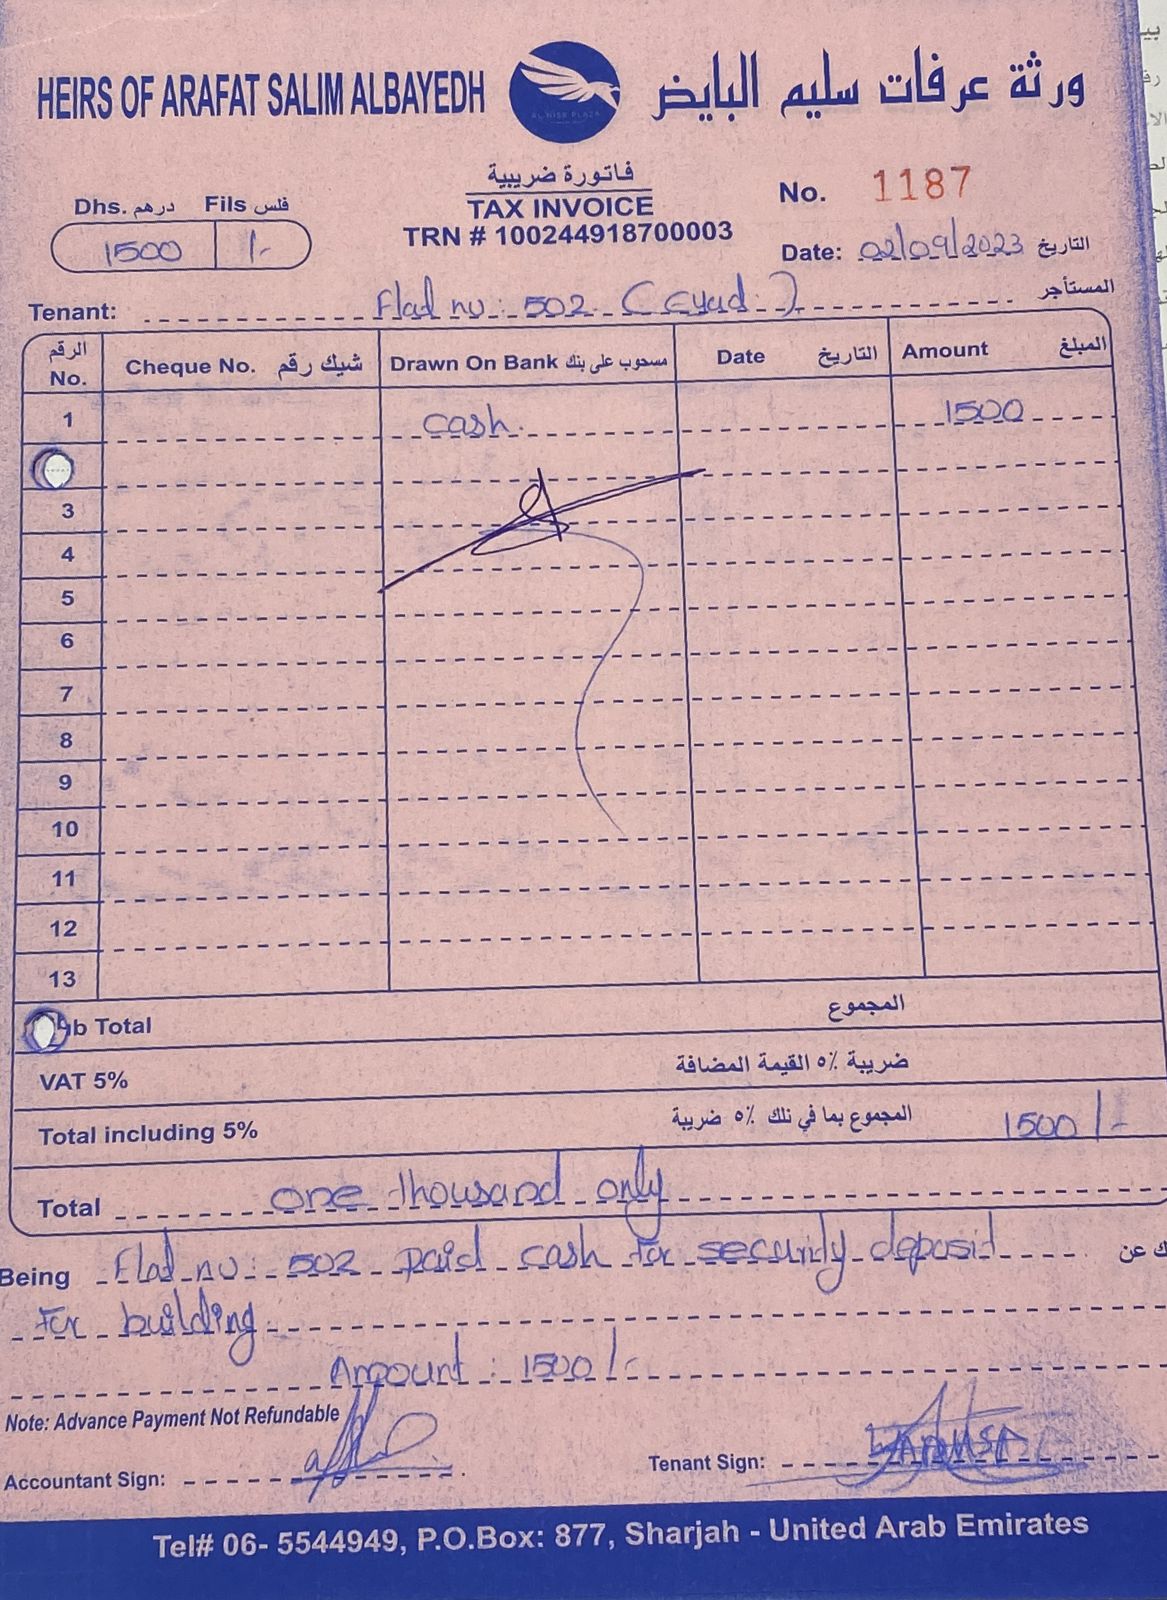 HEIRS OF ARAFAT SALIM ALBAYEDH ورثة عرفات سليم البايض
AL NISR PLAZA
فاتورة ضريبية
TAX INVOICE
TRN # 100244918700003
Dhs. درهم Fils فلس
1500 /-
No. 1187
Date: 02/09/2023 التاريخ
Tenant: Flat no: 502 (Eyad) المستأجر
الرقم No. Cheque No. شيك رقم Drawn On Bank مسحوب على بنك Date التاريخ Amount المبلغ
1 cash. 1500
3
4
5
6
7
8
9
10
11
12
13
ub Total المجموع
VAT 5% ضريبة ٥٪ القيمة المضافة
Total including 5% المجموع بما في تلك ٥٪ ضريبة 1500/-
Total one thousand only
Being Flat no: 502 paid cash for security deposit ك عن
for building
Amount: 1500/-
Note: Advance Payment Not Refundable
Accountant Sign: Tenant Sign:
Tel# 06- 5544949, P.O.Box: 877, Sharjah - United Arab Emirates